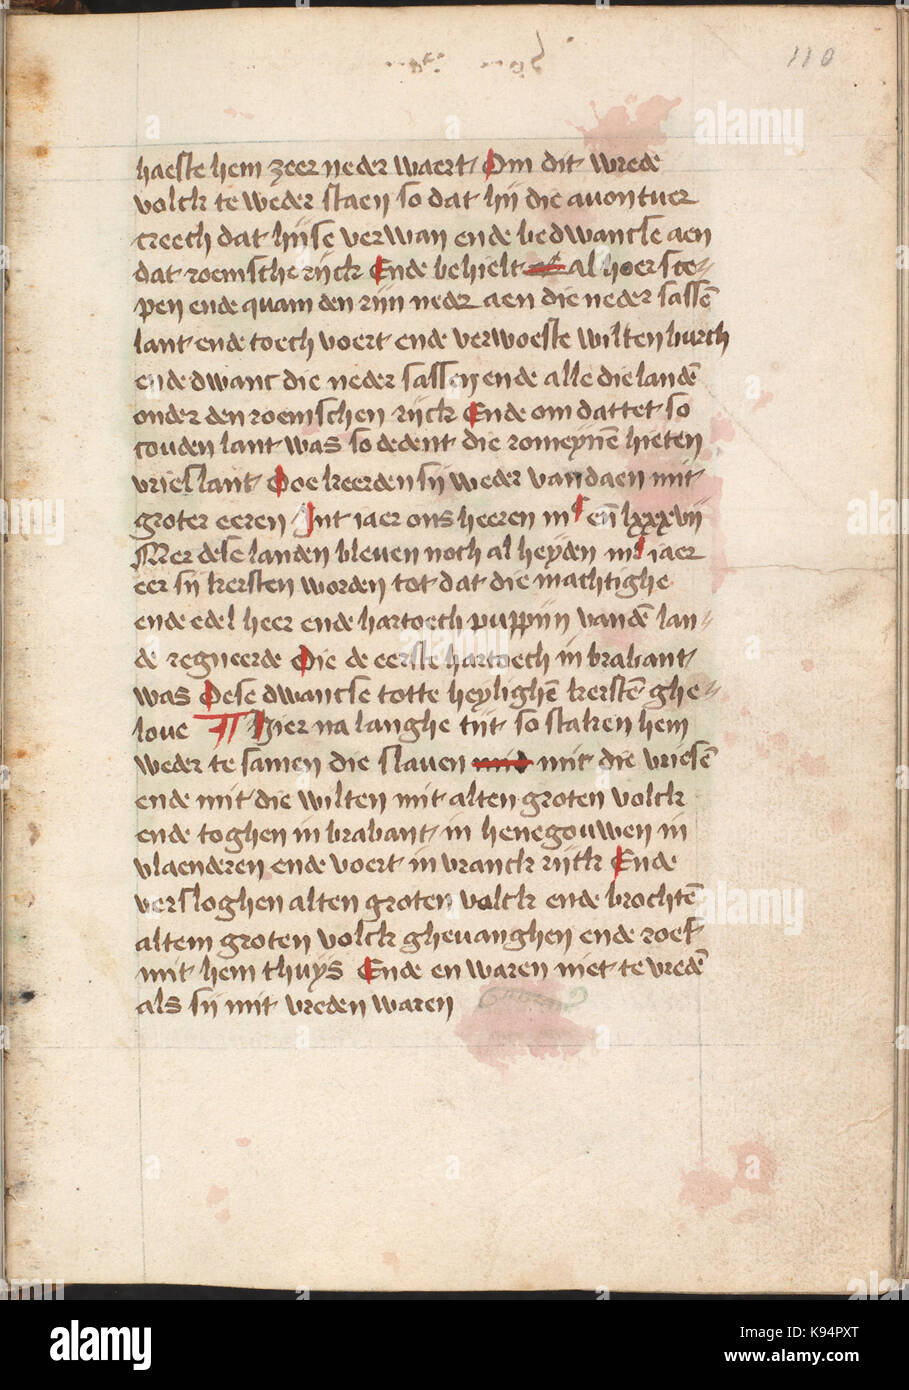 110
haeste hem zeer neder waert Om dit wrede
volck te weder staen so dat hij die auontuer
creech dat hijse verwan ende bedwancse aen
dat roemsche rijck Ende behielt al hoer stoe-
pen ende quam den rijn neder aen die neder sassē
lant ende toech voert ende verwoeste wiltenburch
ende dwanc die neder sassen ende alle die landē
onder den roemschen rijck Ende om dattet so
couden lant was so dedent die romeynē hieten
vrieslant Doe keerden sij weder van daen mit
groter eeren Int iaer ons heeren en̄ lxxxvij
Mer dese landen bleuen noch al heyden iaer
eer sij kersten worden tot dat die machtighe
ende edel heer ende hartoech puppijn vandē lan-
de regneerde Die de eerste hartoech in brabant
was Dese dwancse totte heylighē kerstē ghe-
loue Hier na langhe tijt so staken hem
weder te samen die slauen mit die vriesē
ende mit die wilten mit alten groten volck
ende toghen in brabant in henegouwen in
vlaenderen ende voert in vranckrijck Ende
versloghen alten groten volck ende brochtē
altem groten volck gheuanghen ende roef
mit hem thuys Ende en waren niet te vredē
als sij mit vreden waren
alamy
Image ID: K94PXT
www.alamy.com